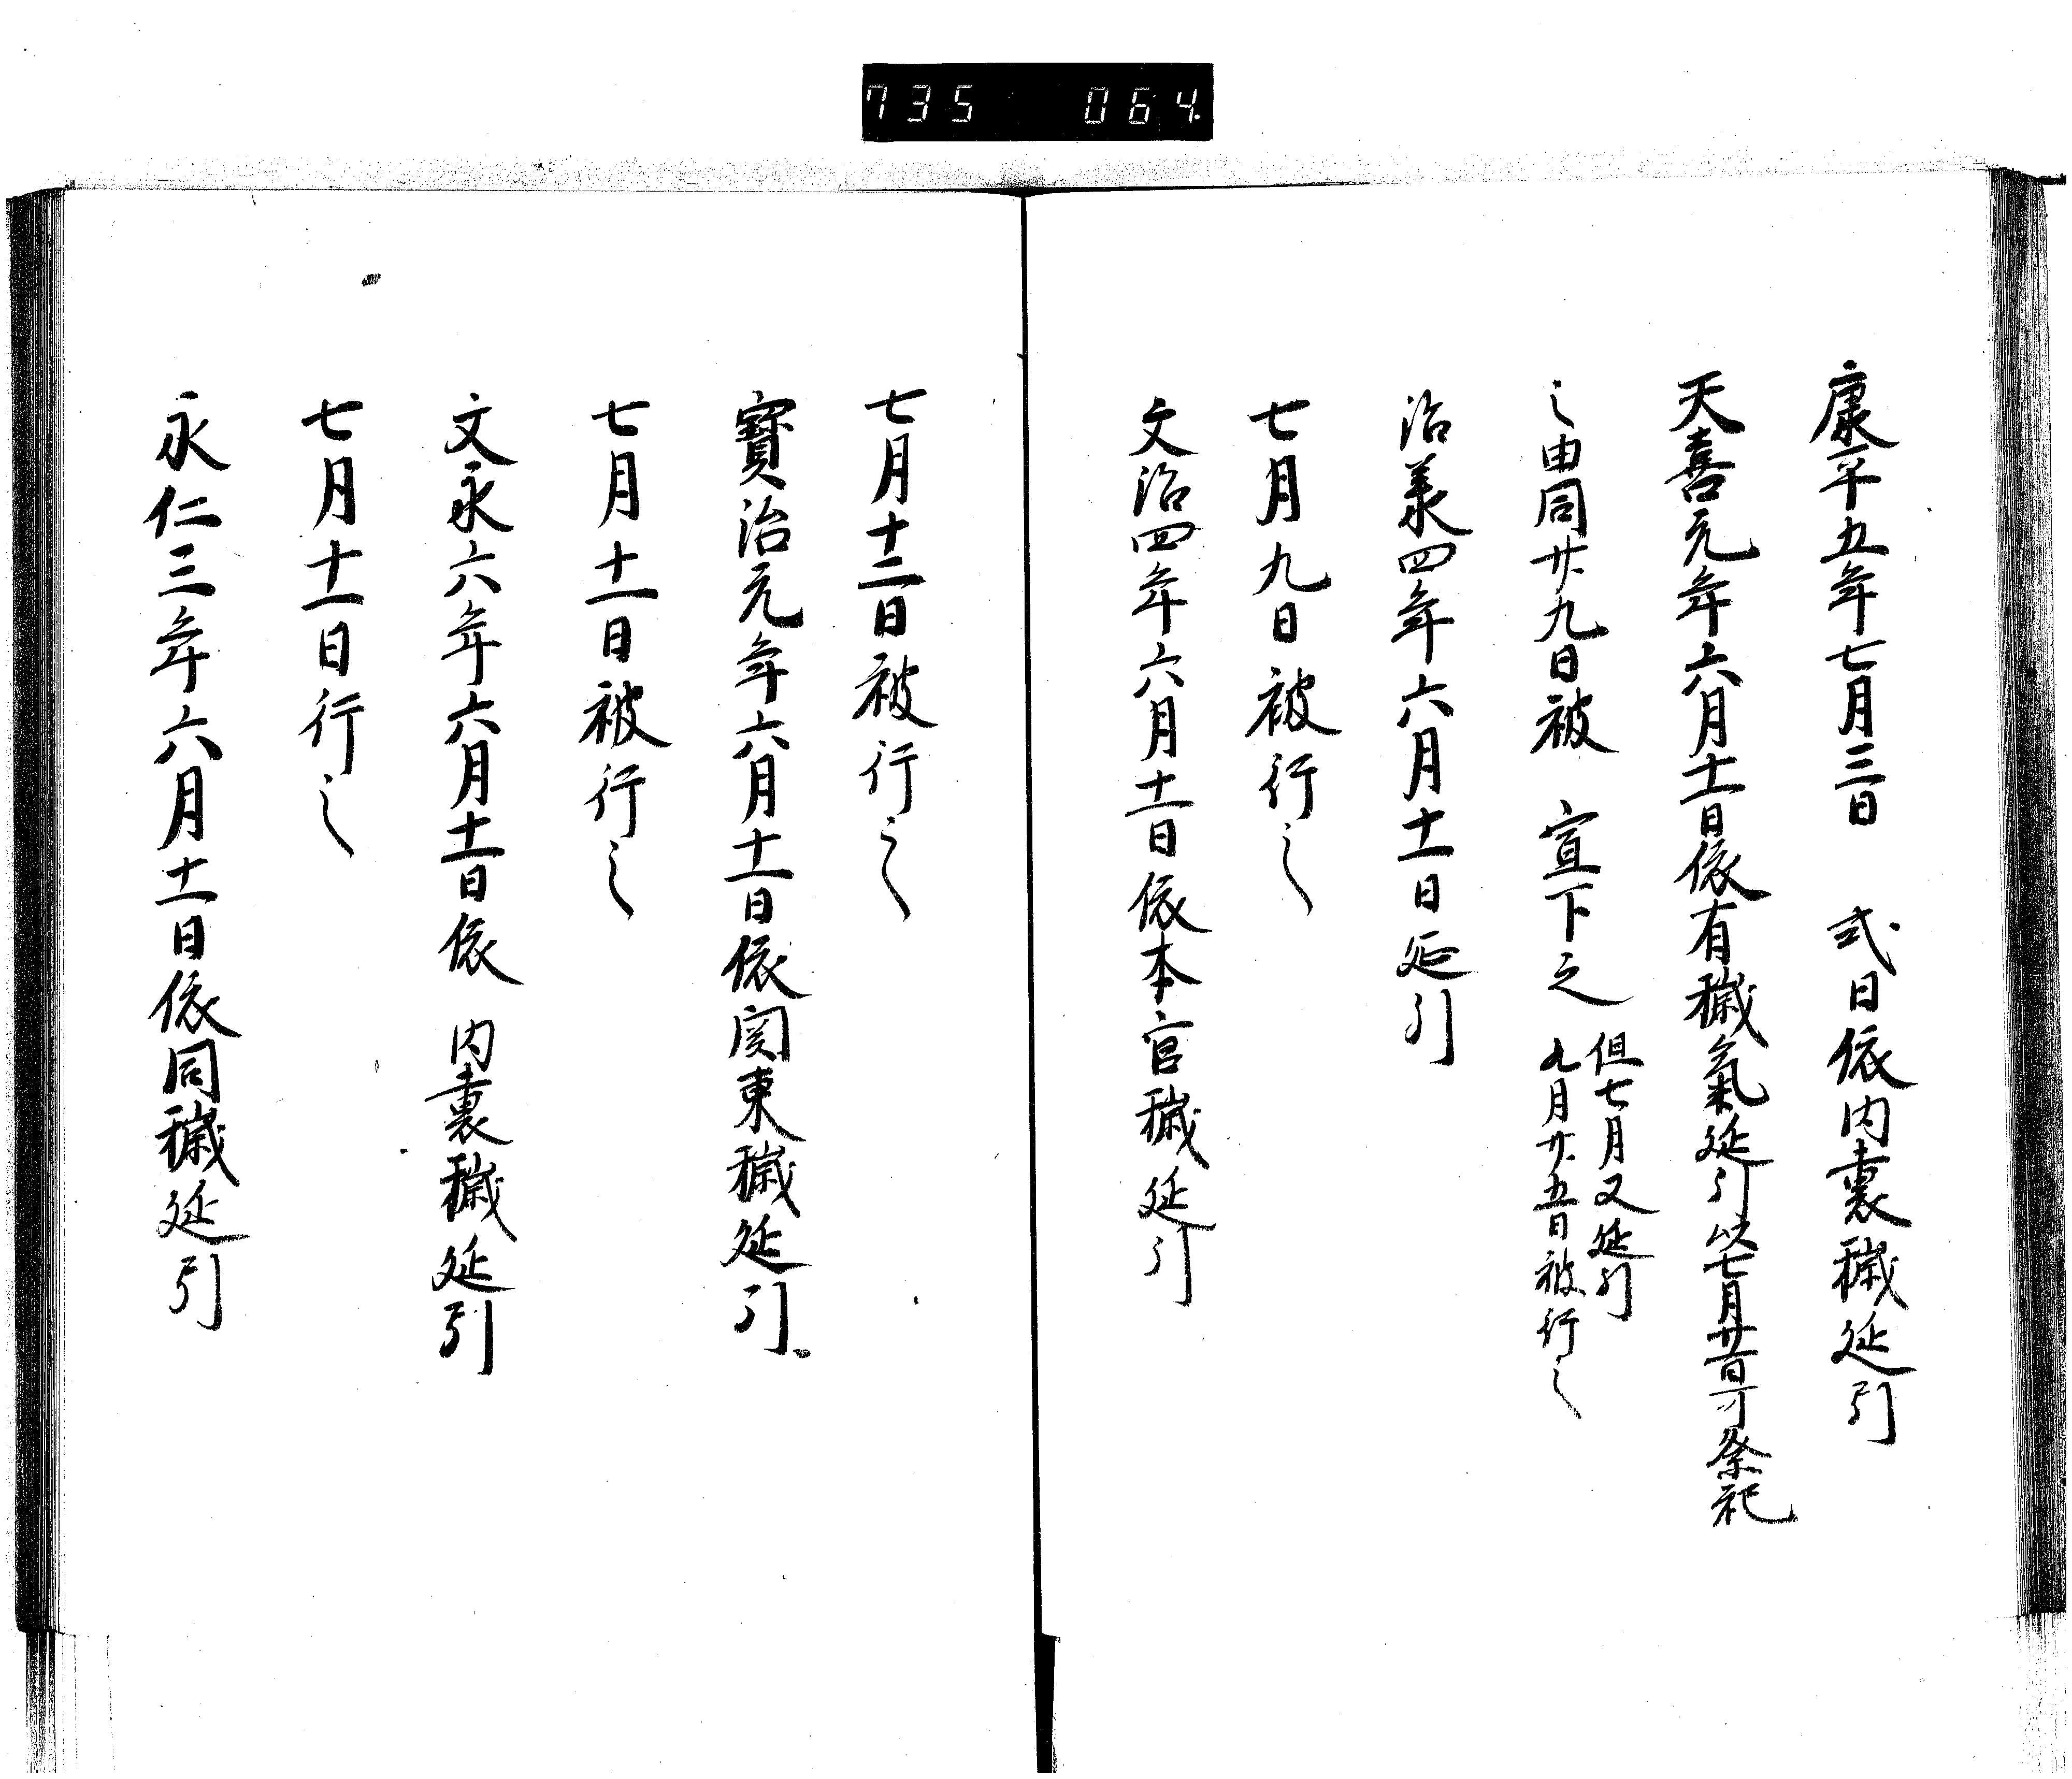 735 064
康平五年七月三日　式日依内裏穢延引
天喜元年六月十一日依有穢氣延引以七月廿日可祭祀
之由同廿九日被　宣下之
但七月又延引
九月廿五日被行之
治承四年六月十一日延引
七月九日被行之
文治四年六月十一日依本宮穢延引
七月十二日被行之
寶治元年六月十一日依関東穢延引
七月十一日被行之
文永六年六月十一日依　内裏穢延引
七月十一日行之
永仁三年六月十一日依同穢延引